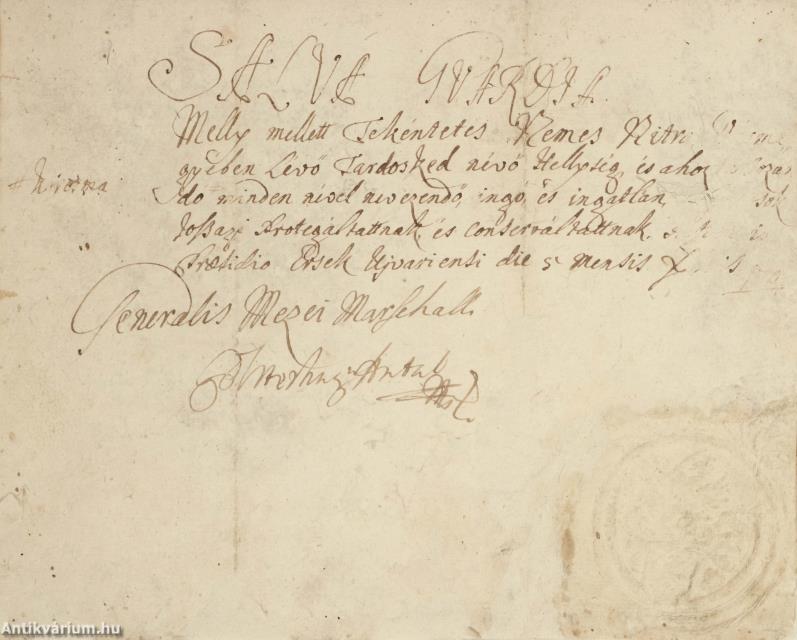 SALVA GVARDIA.
Melly mellett Tekéntetes Nemes Nitr
gyében Lévő Tardosked névő Hellység, és ahoz
do minden nével nevezendő, ingó, és ingatlan,
Protegáltattnak, és conserváltattnak.
Præsidio Érsek Ujvariensi die 5 mensis
Generalis Mezei Marschall
Antal
Antikvárium.hu